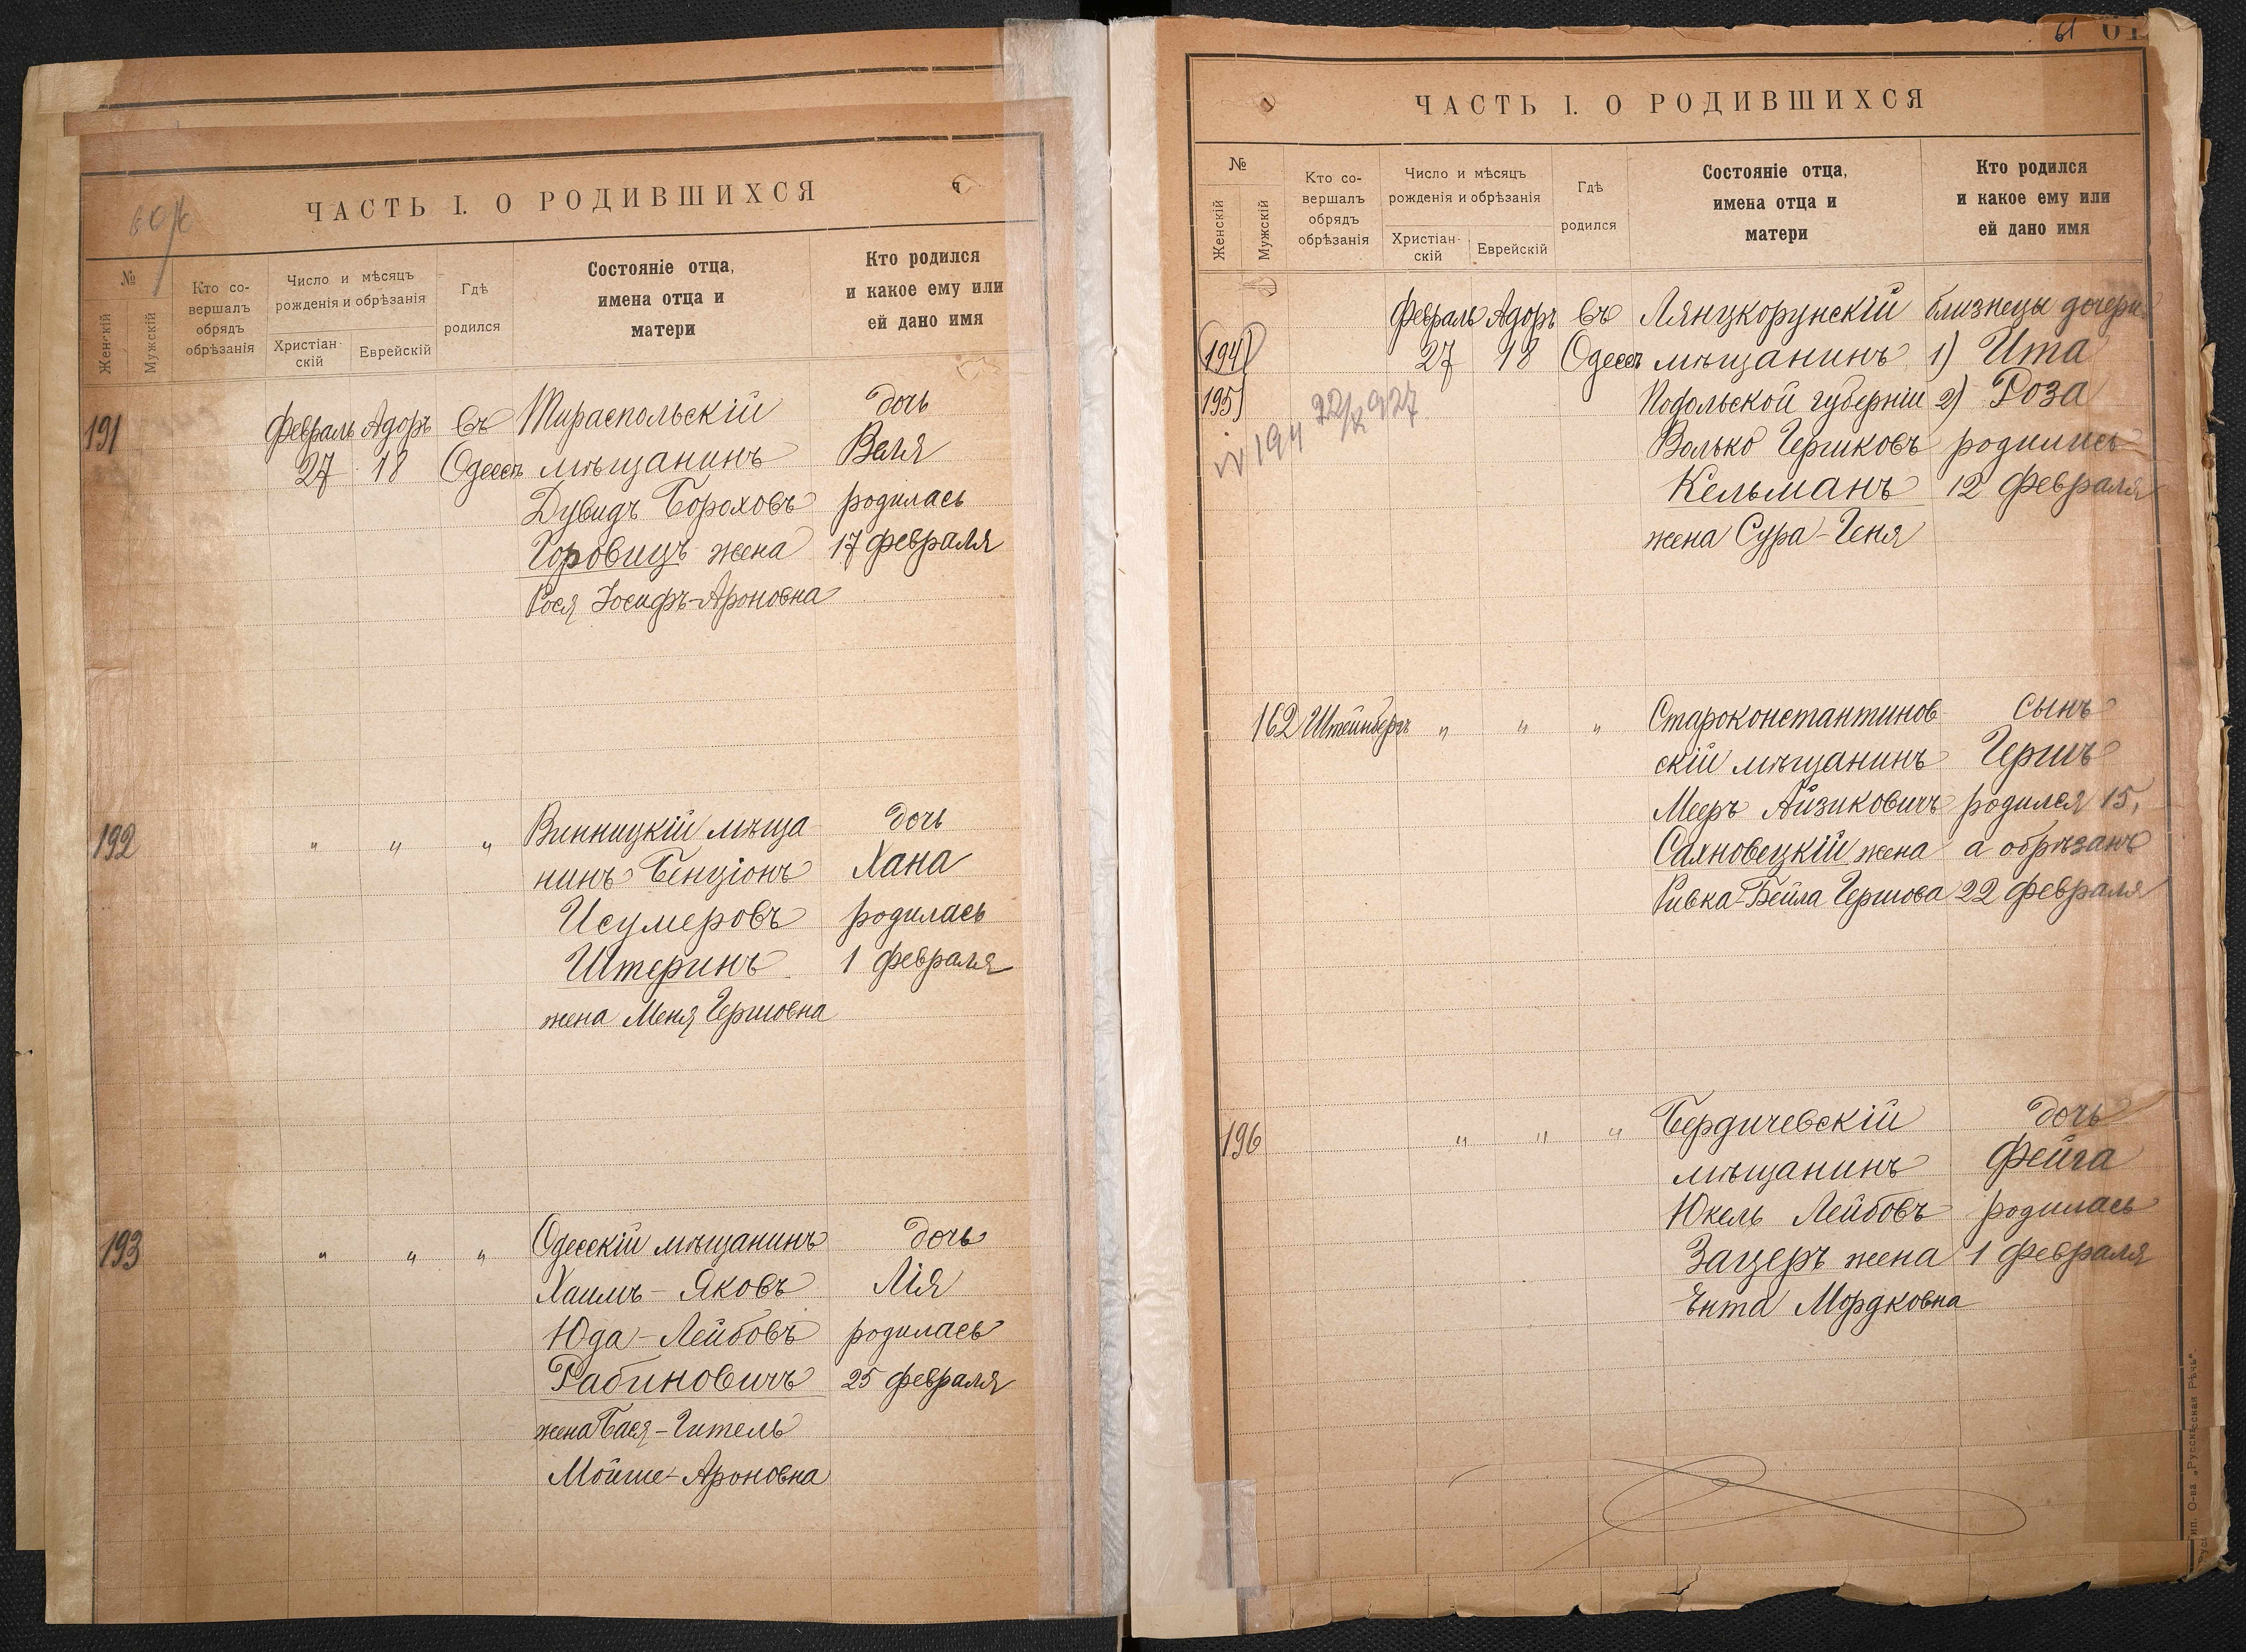 60 об
ЧАСТЬ I. О РОДИВШИХСЯ
№
Женскій
Мужскій
Кто со-
вершалъ
обрядъ
обрѣзанія
Число и мѣсяцъ
рожденія и обрѣзанія
Христіан-
скій
Еврейскій
Гдѣ
родился
Состояніе отца,
имена отца и
матери
Кто родился
и какое ему или
ей дано имя
191 Февраль Адоръ Въ Тираспольскій дочь
27 18 Одессѣ мѣщанинъ Веля
Дувидъ Бороховъ родилась
Горовицъ жена 17 февраля
Рося Іосифъ-Ароновна
192 " " " Винницкій мѣща дочь
нинъ Бенціонъ Хана
Исумеровъ родилась
Штеринъ 1 февраля
жена Меня Гершовна
193 " " " Одесскій мѣщанинъ дочь
Хаимъ-Яковъ Лія
Юда-Лейбовъ родилась
Рабиновичъ 25 февраля
жена Бася-Гитель
Мойше-Ароновна
61
ЧАСТЬ I. О РОДИВШИХСЯ
№
Женскій
Мужскій
Кто со-
вершалъ
обрядъ
обрѣзанія
Число и мѣсяцъ
рожденія и обрѣзанія
Христіан-
скій
Еврейскій
Гдѣ
родился
Состояніе отца,
имена отца и
матери
Кто родился
и какое ему или
ей дано имя
Февраль Адоръ Въ Лянцкорунскій близнецы дочери
194 27 18 Одессѣ мѣщанинъ 1) Ита
195 Подольской губерніи 2) Роза
22/X 927
194
Волько Гершковъ родились
Кельманъ 12 февраля
жена Сура-Геня
162 Штейнбергъ " " " Староконстантинов- сынъ
скій мѣщанинъ Гершъ
Мееръ Айзиковичъ родился 15,
Сахновецкій жена а обрѣзанъ
Ривка-Бейла Гершова 22 февраля
196 " " " Бердичевскій дочь
мѣщанинъ Фейга
Юкель Лейбовъ родилась
Зацеръ жена 1 февраля
Ента Мордковна
Тип. О-ва „Русская Рѣчь".